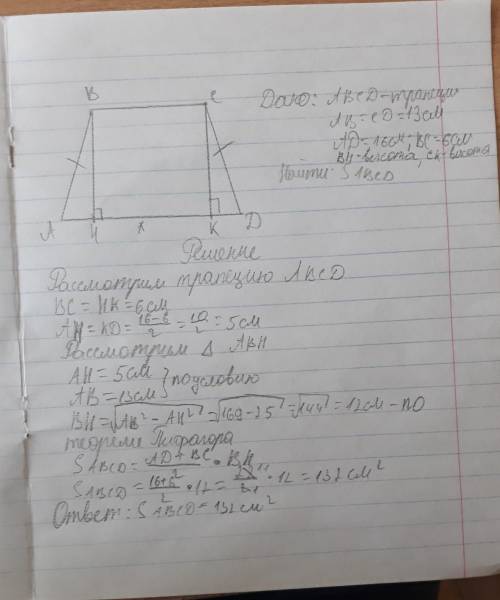 B C
A H K D
Дано: ABCD-трапеция
AB = CD = 13 см
AD = 16 см; BC = 6 см
BH-высота, CK-высота
Найти: SABCD
Решение
Рассмотрим трапецию ABCD
BC = HK = 6 см
AH = KD = 16-6/2 = 10/2 = 5 см
Рассмотрим Δ ABH
AH = 5 см } по условию
AB = 13 см
BH = √AB² - AH² = √169 - 25 = √144 = 12 см - по
теореме Пифагора
SABCD = AD + BC/2 · BH
SABCD = 16+6/2 · 12 = 22/2 · 12 = 132 см²
Ответ: SABCD = 132 см²